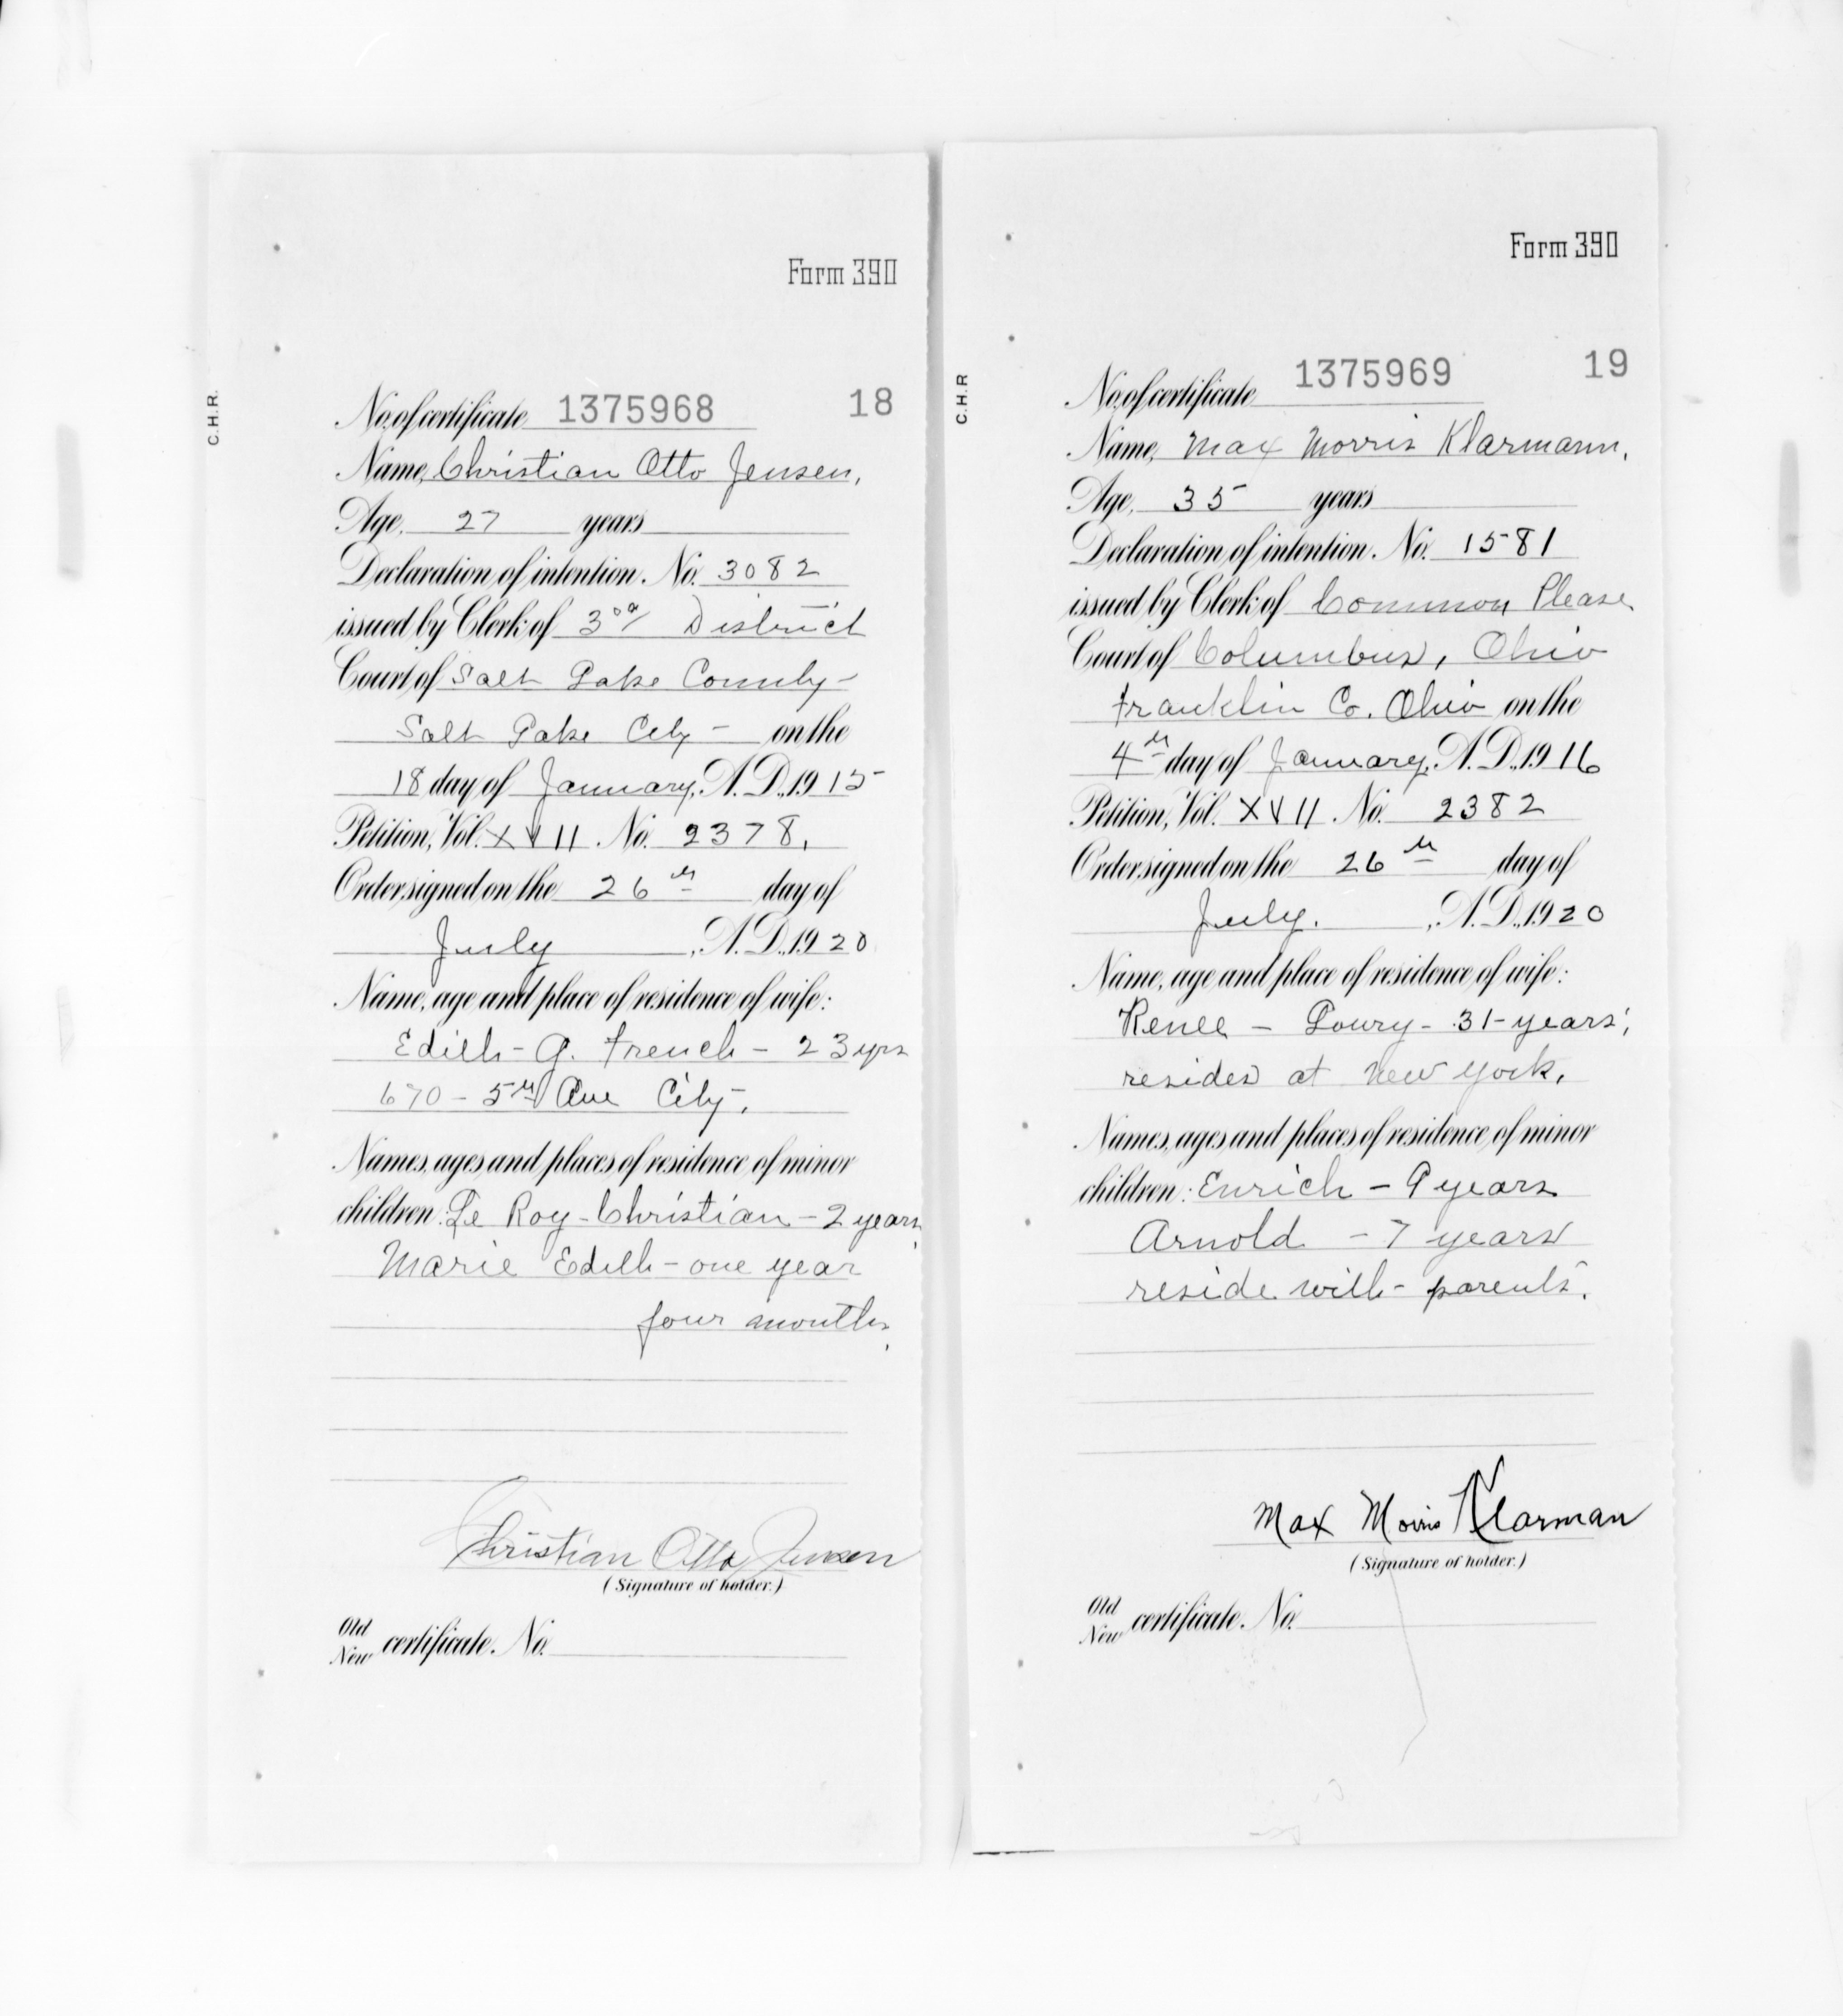 Form 390
C.H.R.
No. of certificate 1375968 18
Name, Christian Otto Jensen,
Age, 27 years
Declaration of intention. No. 3082
issued by Clerk of 3rd District
Court of Salt Lake County-
Salt Lake City - on the
18 day of January, A.D., 1915
Petition, Vol. XVII. No. 2378.
Order signed on the 26th day of
July, A.D., 1920
Name, age and place of residence of wife:
Edith - G. French - 23 yrs
670 - 5th Ave City.
Names, ages and places of residence of minor
children: Le Roy - Christian - 2 years,
Marie Edith - one year
four months.
Christian Otto Jensen
(Signature of holder.)
Old
New certificate. No.
Form 390
C.H.R
No. of certificate 1375969 19
Name, Max Morris Klarmann.
Age, 35 years
Declaration of intention. No. 1581
issued by Clerk of Common Please
Court of Columbus, Ohio
Franklin Co. Ohio on the
4th day of January, A.D., 1916
Petition, Vol. XVII. No. 2382
Order signed on the 26th day of
July. , A.D., 1920
Name, age and place of residence of wife:
Renee - Lowry - 31 - years;
resides at New York.
Names, ages and places of residence of minor
children: Enrich - 9 years
Arnold - 7 years
reside with - parents.
Max Morris Klarman
(Signature of holder.)
Old
New certificate. No.